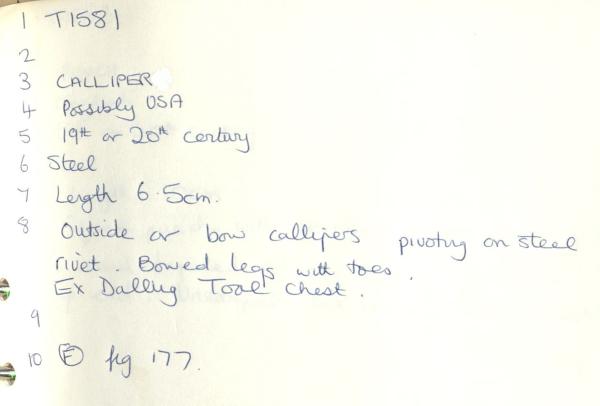 1 T1581
2
3 CALLIPER
4 Possibly USA
5 19th or 20th century
6 Steel
7 Length 6.5cm.
8 Outside or bow callipers pivoting on steel
rivet. Bowed legs with toes.
Ex Dalling Tool Chest.
9
10 (E) fig 177.